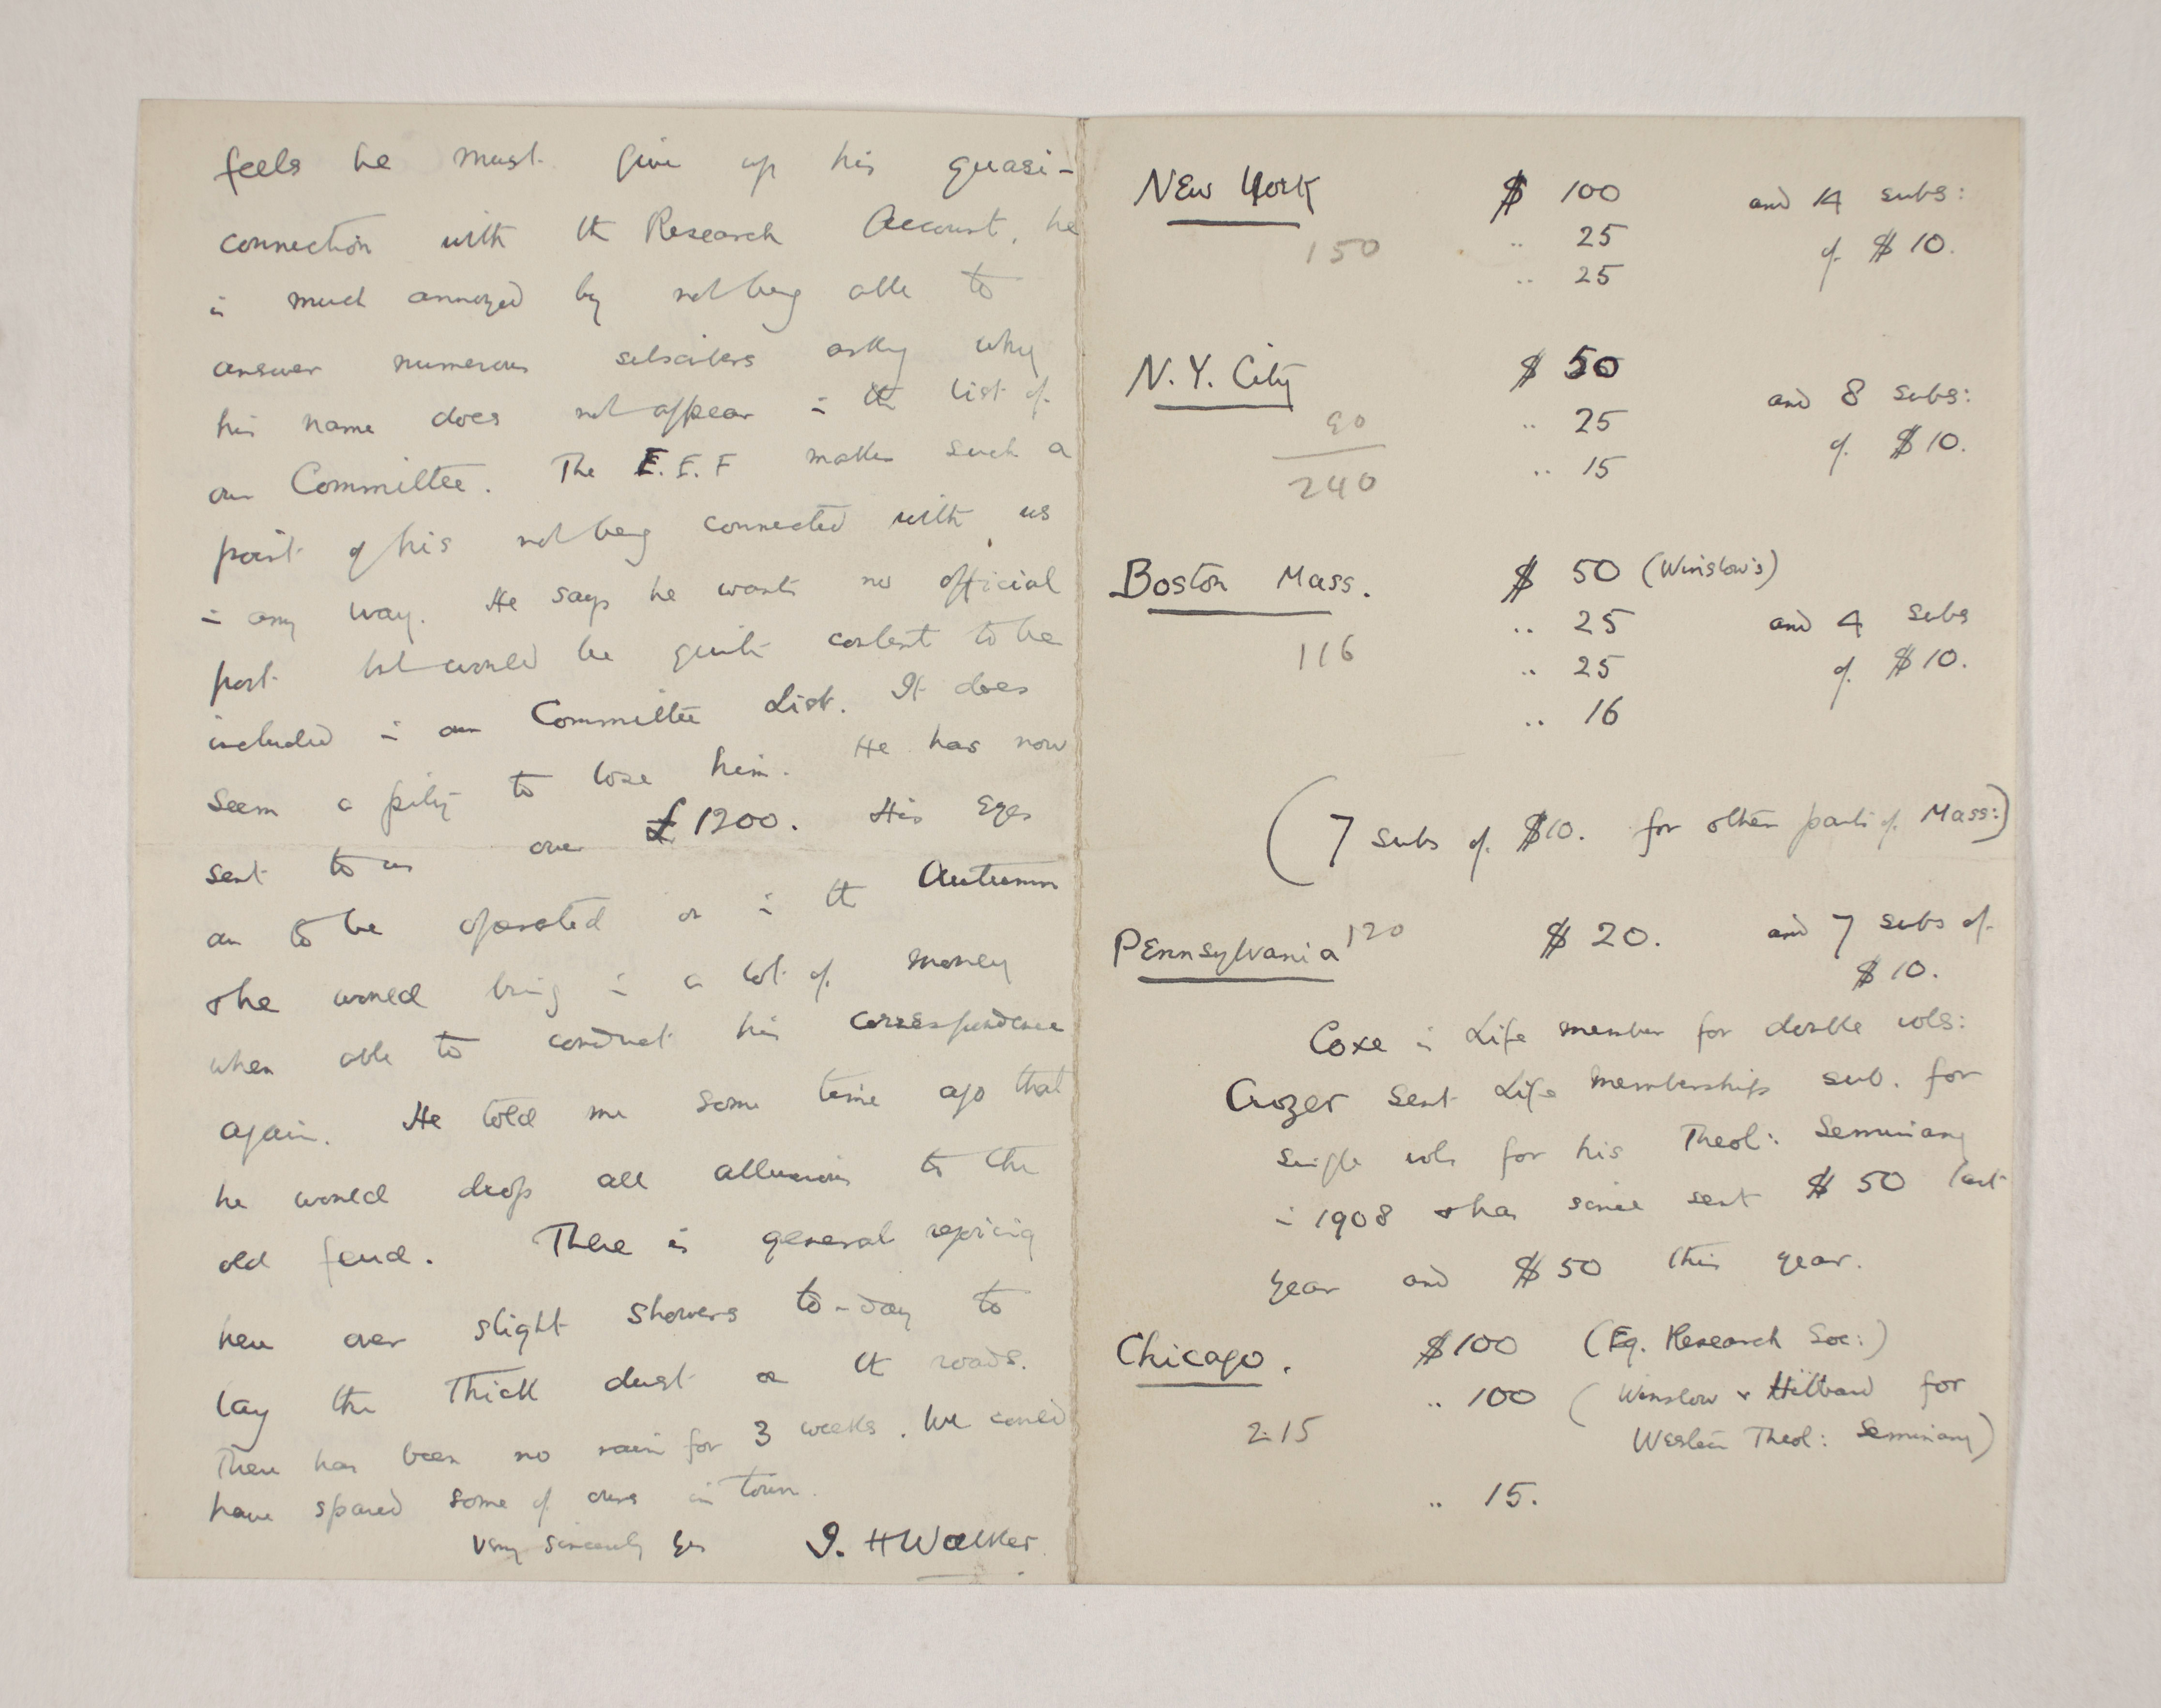 feels he must give up his quasi-
connection with the Research Account, he
is much annoyed by not being able to
answer numerous subscribers asking why
his name does not appear in the list of
our Committee. The E.E.F makes such a
point of his not being connected with us
in any way. He says he wants no official
post but would be quite content to be
included in our Committee List. It does
seem a pity to lose him. He has now
sent to us over £1200. His eyes
are to be operated on in the Autumn
& he would bring in a lot of money
when able to conduct his correspondence
again. He told me some time ago that
he would drop all allusions to the
old feud. There is general rejoicing
here over slight showers to-day to
lay the thick dust on the roads.
There has been no rain for 3 weeks. We could
have spared some of ours in town.
Very sincerely yrs I. H Walker
New York $ 100 and 14 subs:
150 .. 25 of $ 10.
.. 25
N.Y. City $ 50
90 .. 25 and 8 subs:
240 .. 15 of $ 10.
Boston Mass. $ 50 (Winslow's)
.. 25 and 4 subs
116 .. 25 of $ 10.
.. 16
(7 subs of $10. for other parts of Mass:)
Pennsylvania 120 $ 20. and 7 subs of
$ 10.
Coxe is Life member for double vols:
Crozer sent Life membership sub. for
single vols for his Theol: Seminary
in 1908 & has since sent $ 50 last
year and $ 50 this year.
Chicago. $100 (Eg. Research Soc:)
.. 100 (Winslow & Hilbard for
215 Western Theol: Seminary)
.. 15.